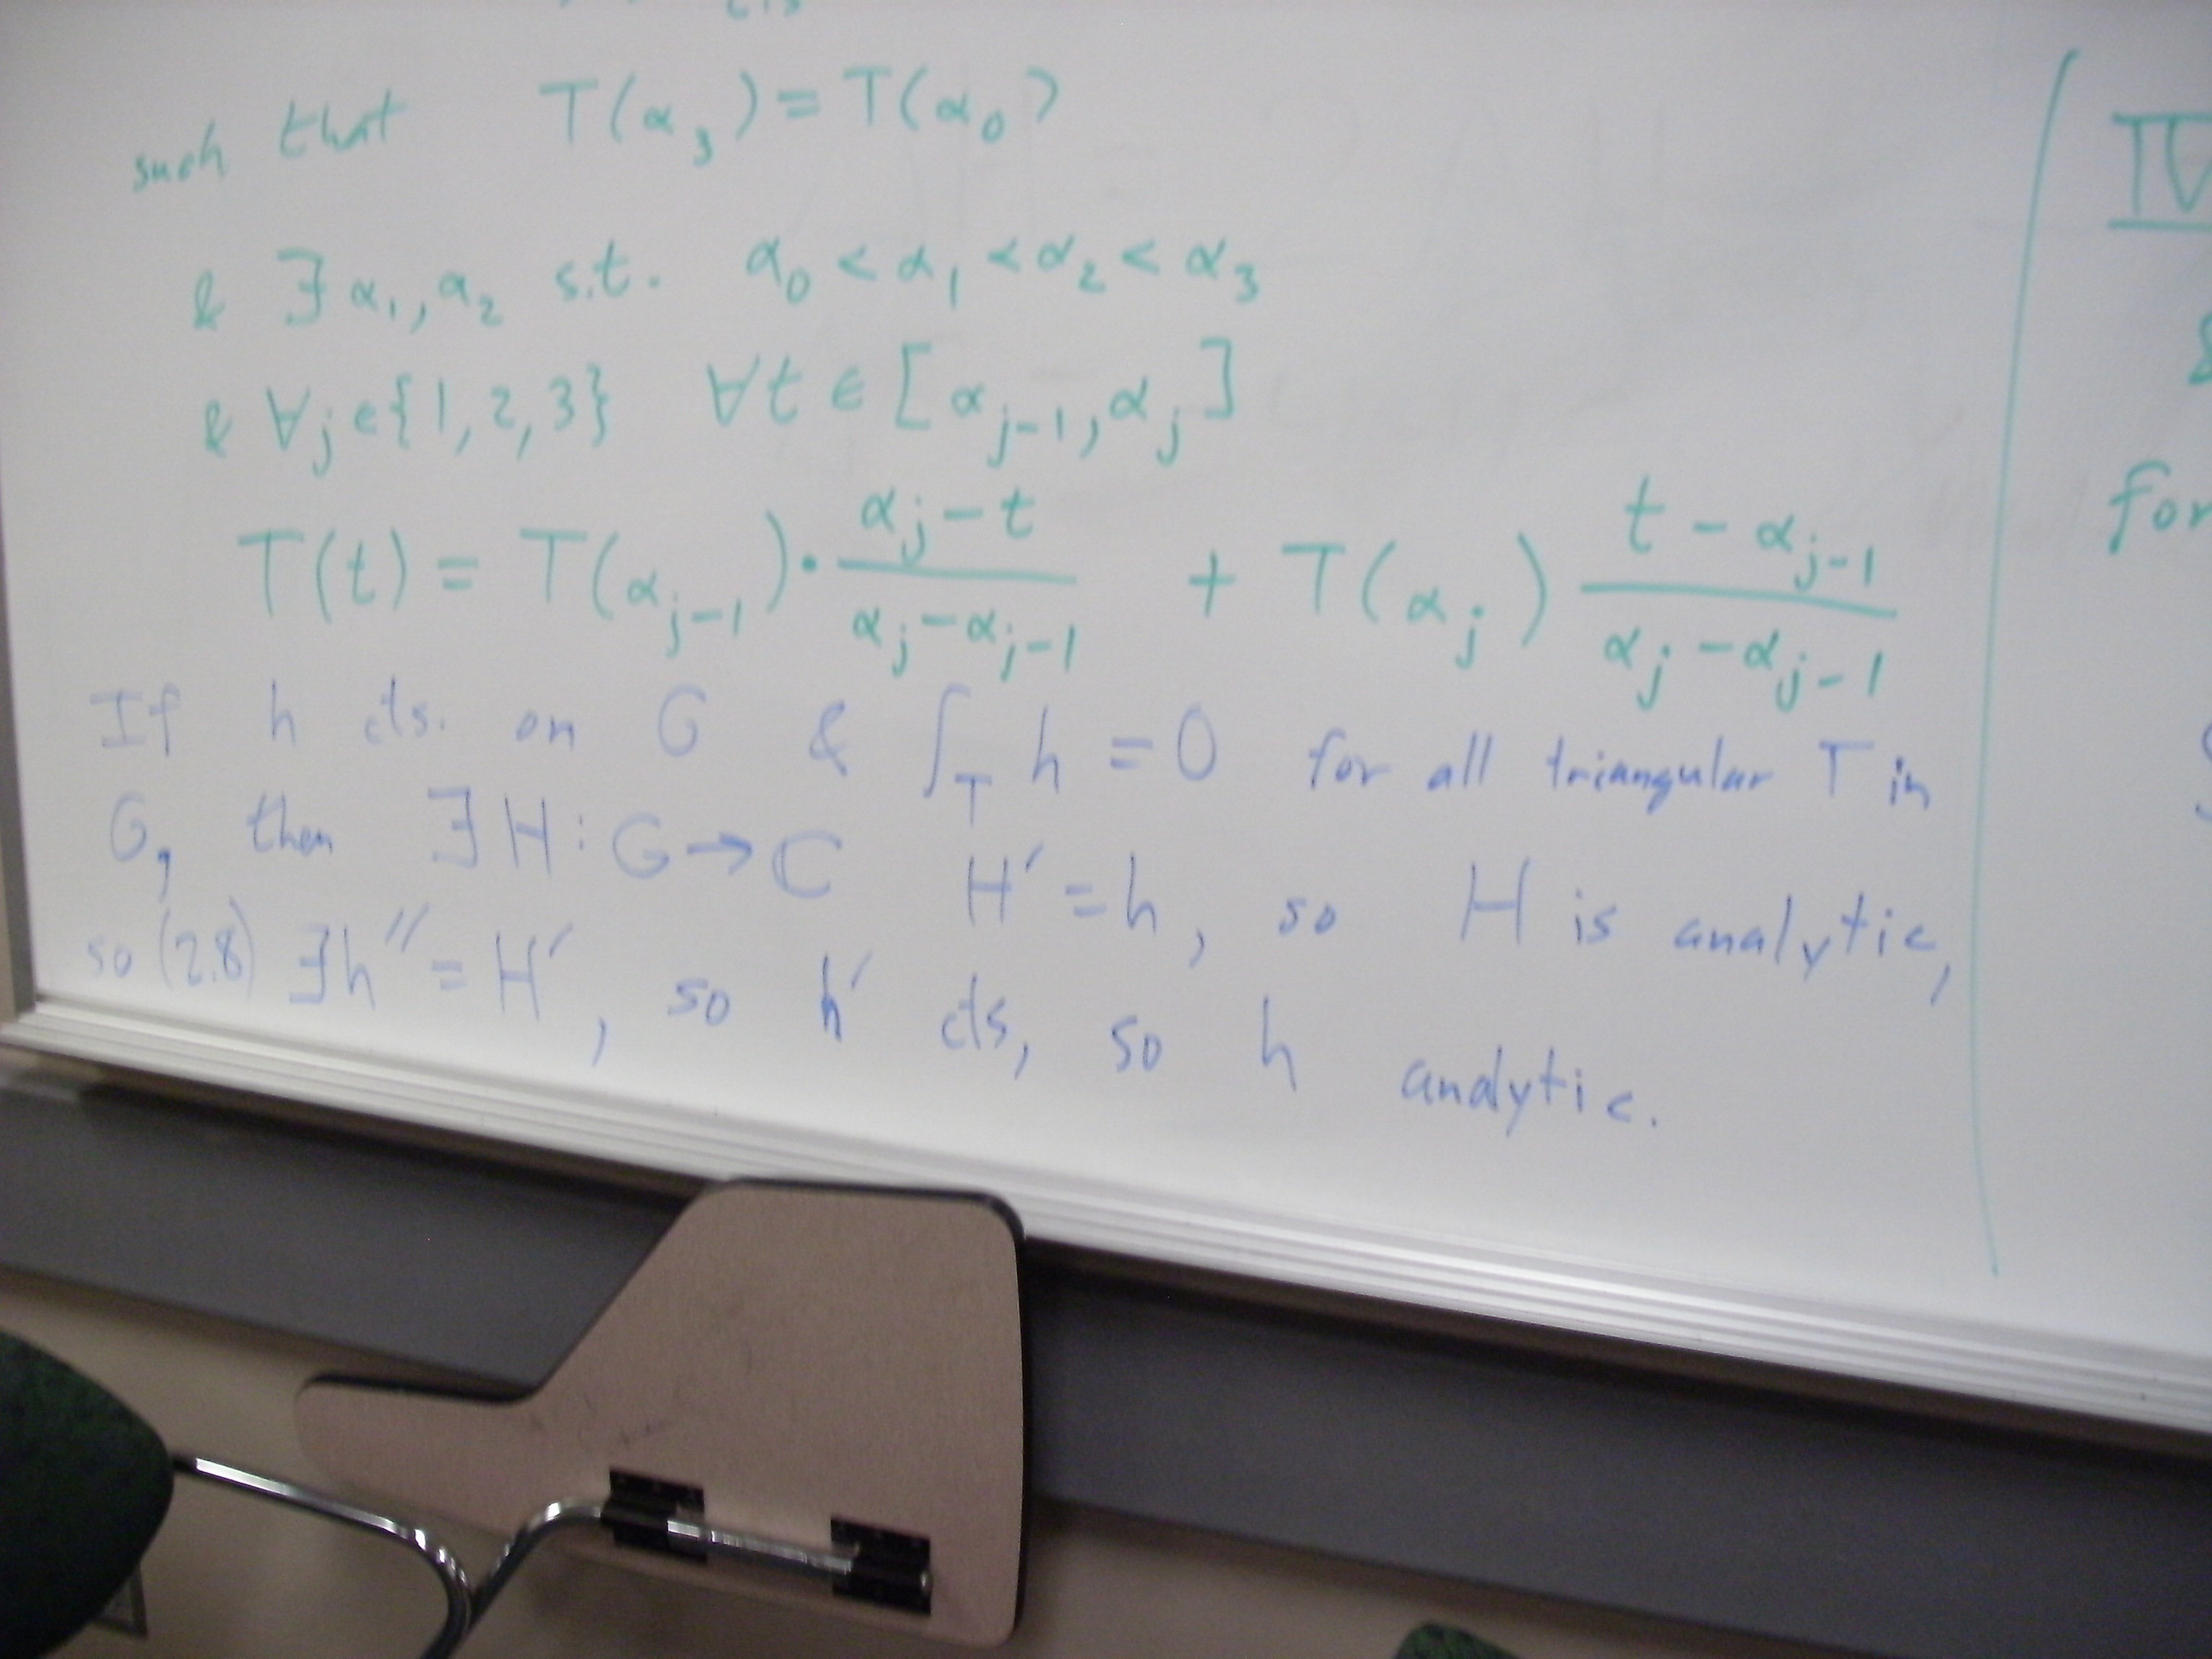 cts
such that T(α₃) = T(α₀)
& ∃ α₁, α₂ s.t. α₀ < α₁ < α₂ < α₃
& ∀j ∈ {1,2,3} ∀t ∈ [α_{j-1}, α_j]
T(t) = T(α_{j-1}) · (α_j - t)/(α_j - α_{j-1}) + T(α_j) (t - α_{j-1})/(α_j - α_{j-1})
If h cts. on G & ∫_T h = 0 for all triangular T in
G, then ∃ H: G → ℂ H′ = h, so H is analytic,
so (2.8) ∃h″ = H′, so h′ cts, so h analytic.
IV
&
for